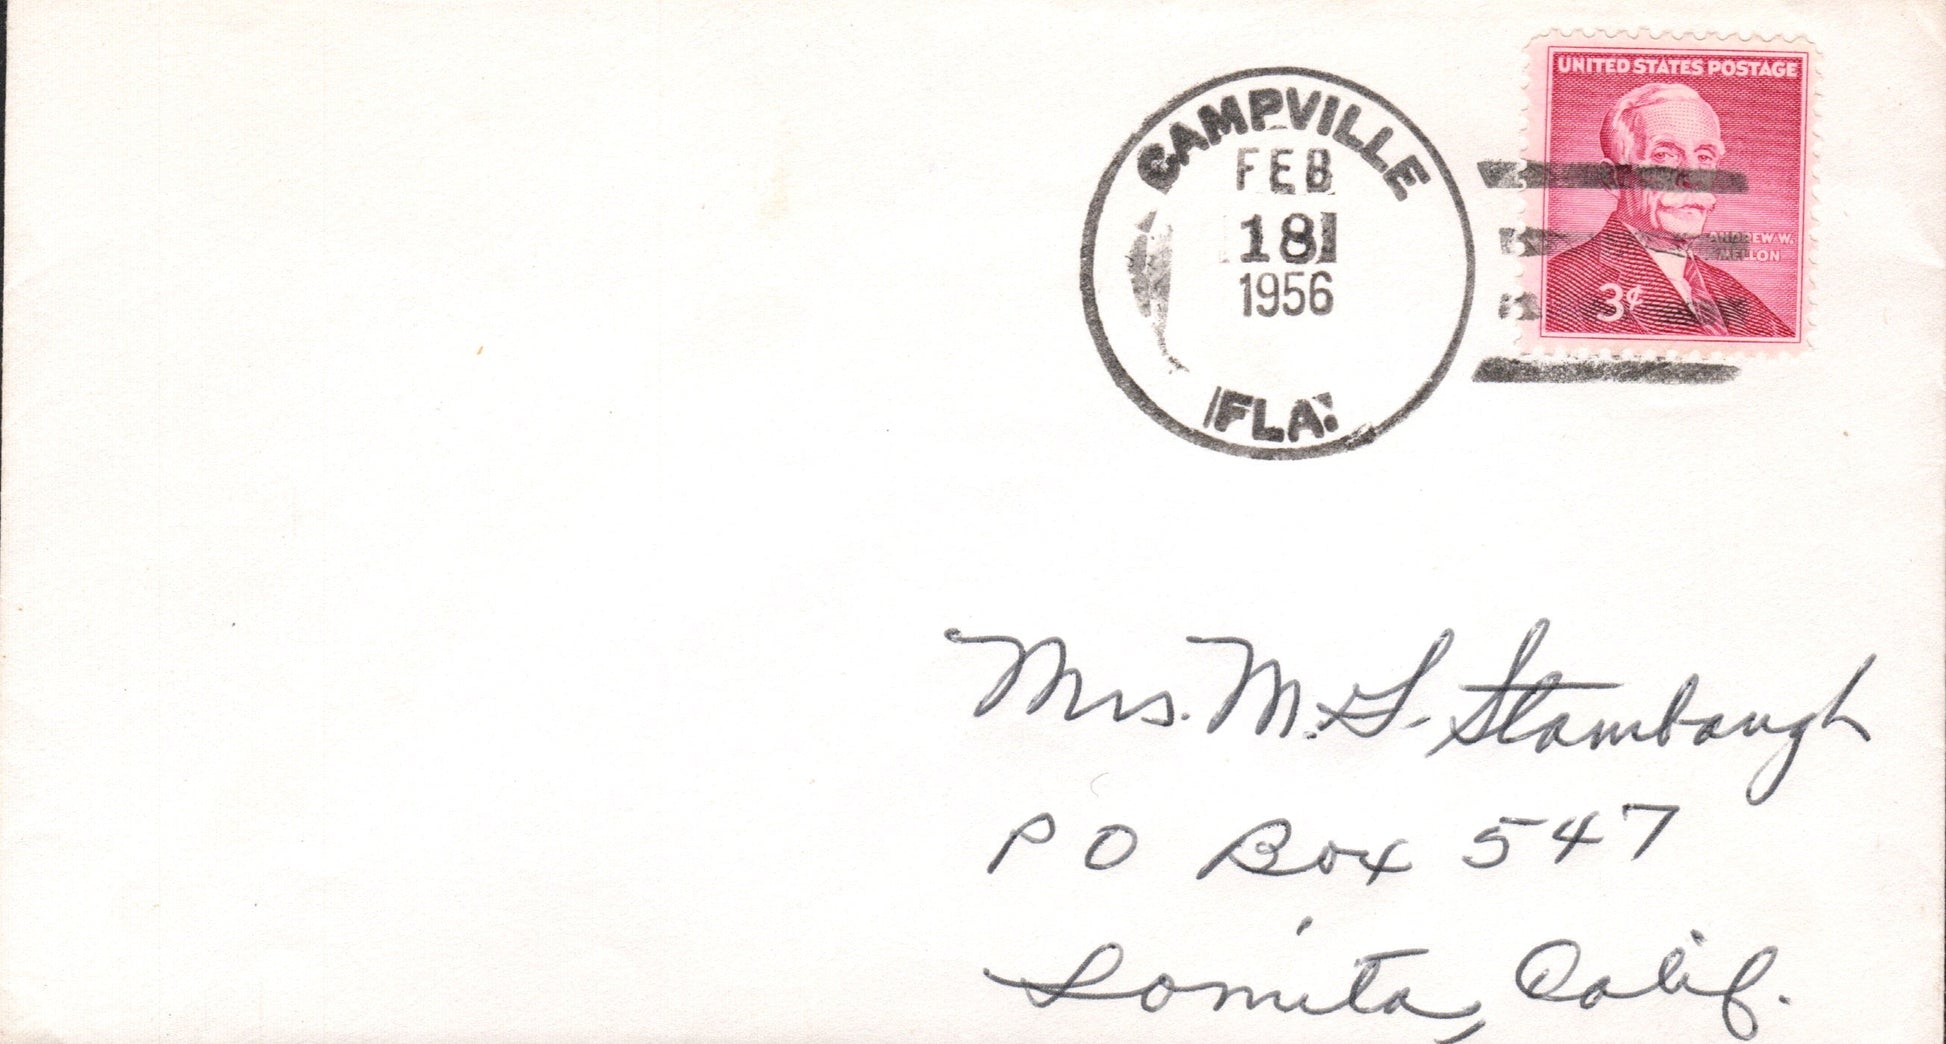 UNITED STATES POSTAGE
ANDREW W.
MELLON
3¢
CAMPVILLE
FEB
18
1956
FLA.
Mrs. M. L. Stambaugh
PO Box 547
Lomita, Calif.